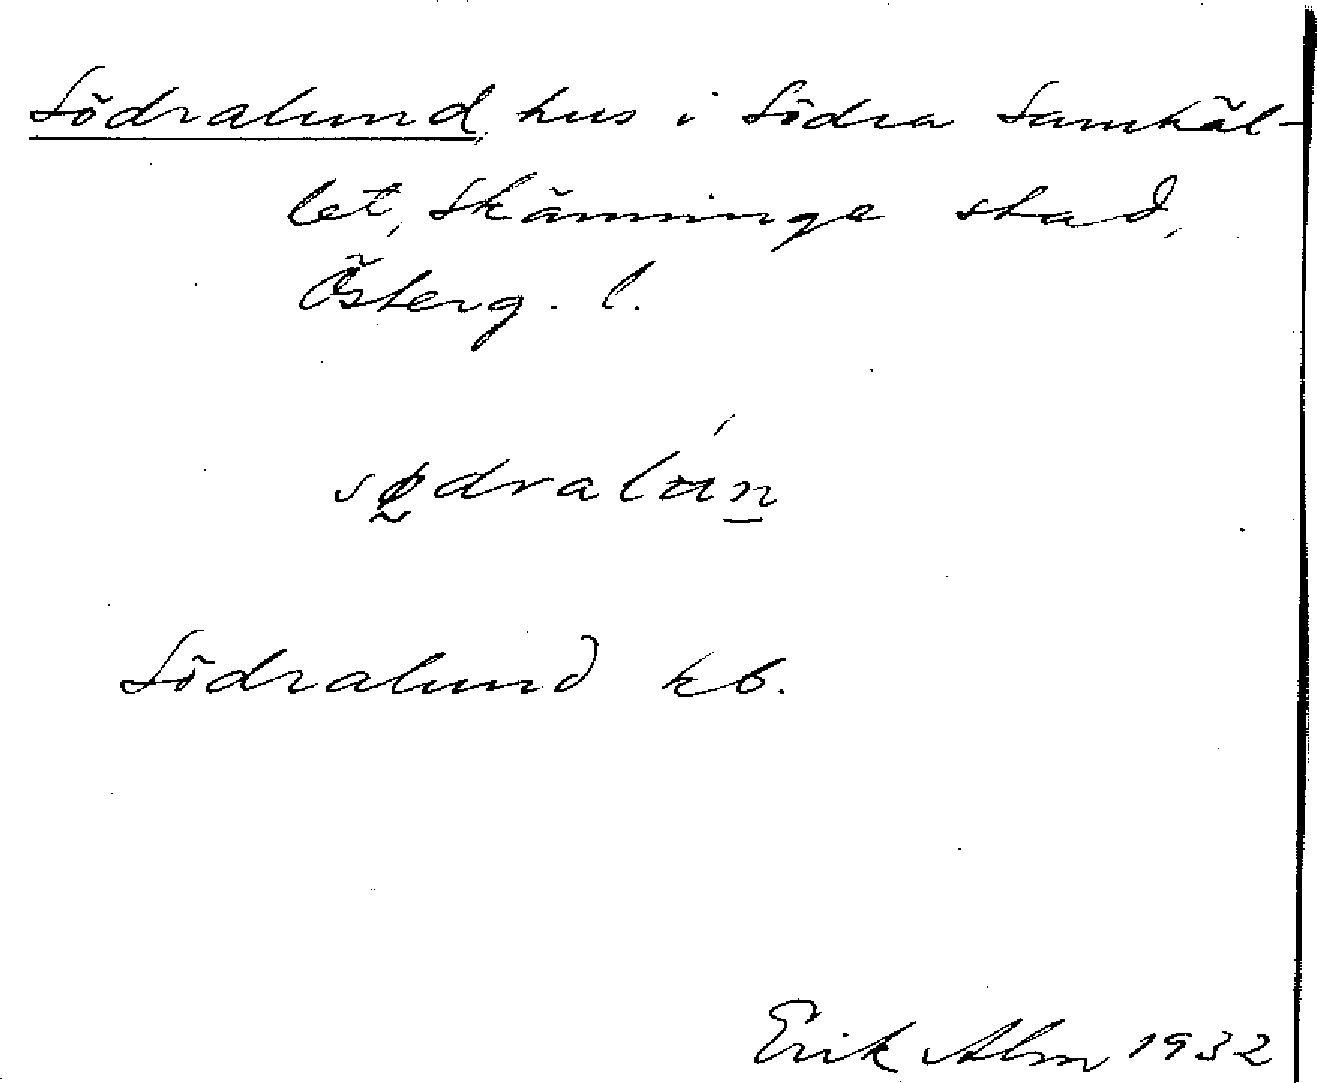 Södralund, hus i Södra Samhäl-
let, Skänninge stad,
Österg. l.
sø̰dralɑ́n̲
Södralund kb.
Erik Alm 1932